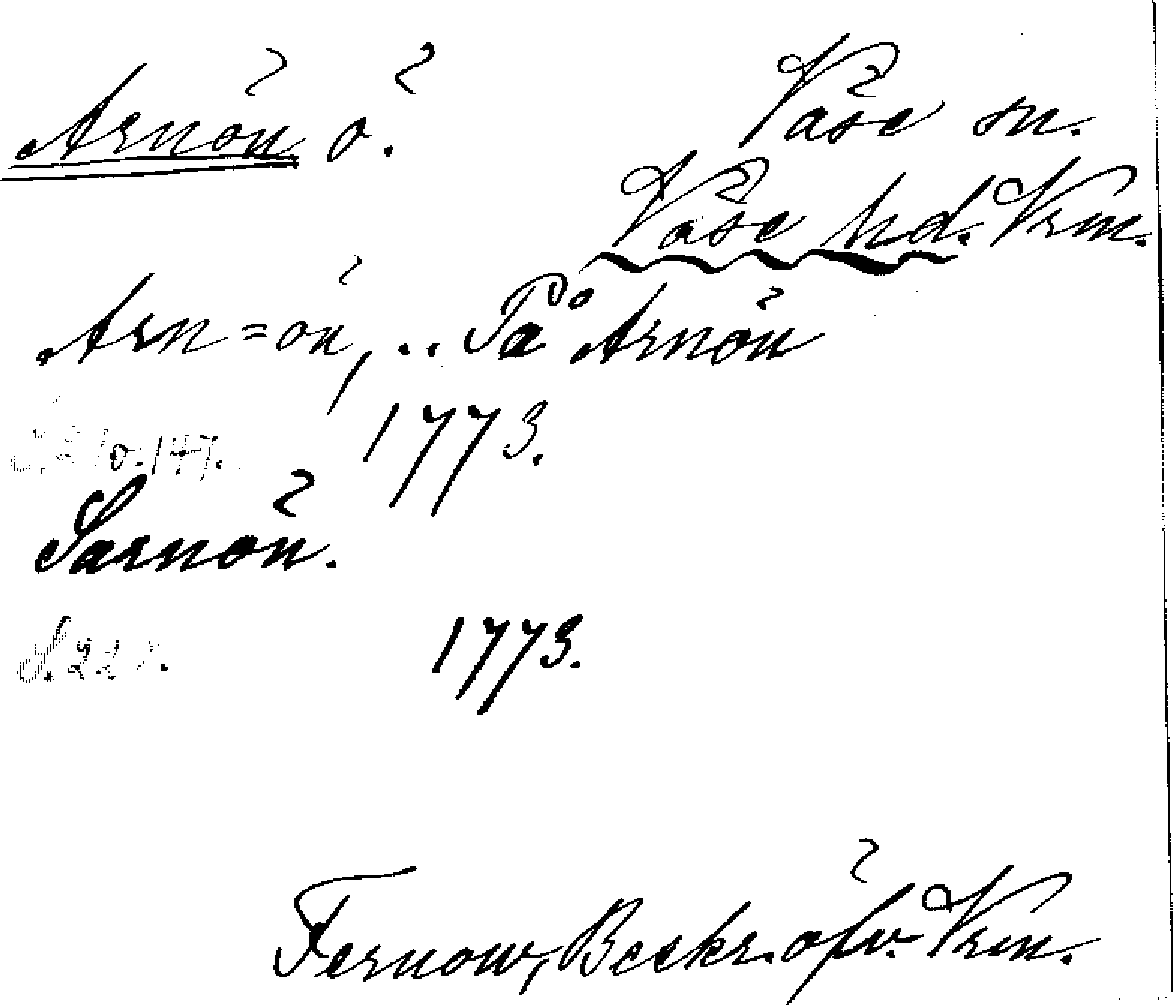 Arnön ö. Väse sn.
Väse hd. Vrm.
Arn=ön, .. På Arnön
1773.
Sarnön.
1773.
Fernow, Beskr. öfv. Vrm.